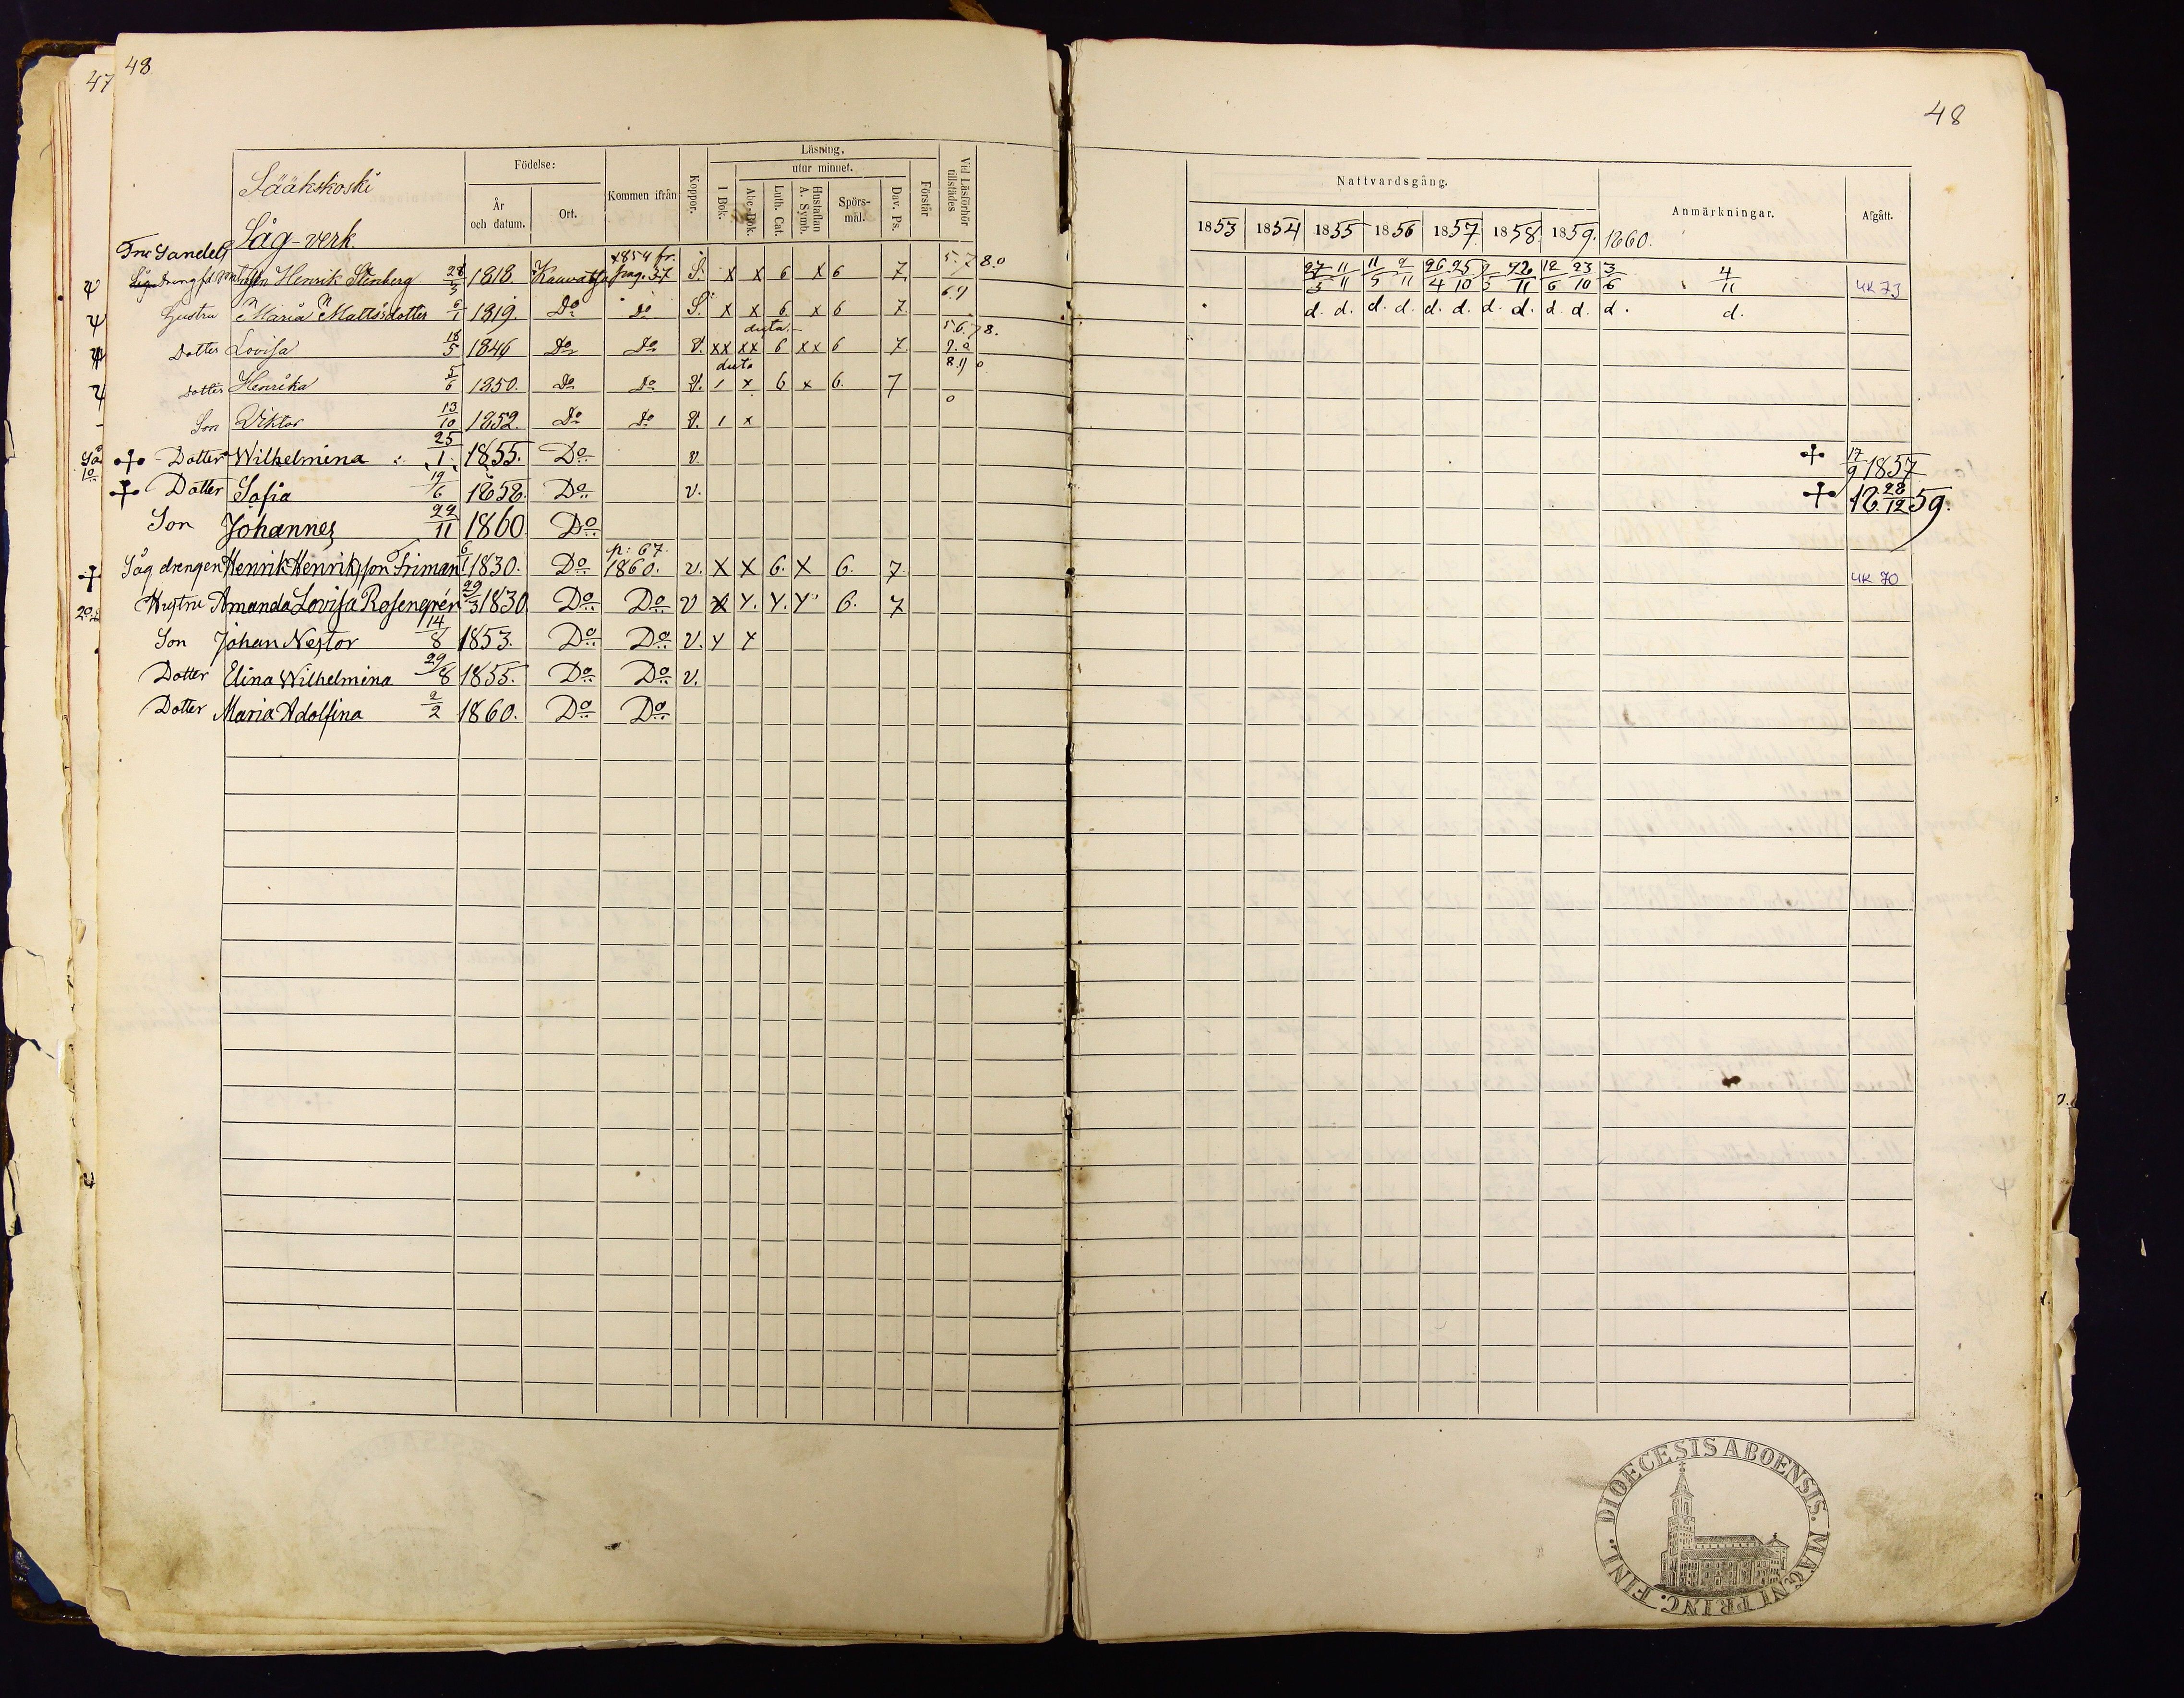 47
48
48
Sääkskoski
Såg-verk.
Födelse:
År
och datum.
Ort.
Kommen ifrån
Koppor.
Läsning,
utur minnet.
I Bok.
Abc-Bok.
Luth. Cat.
Hustaflan
A. Symb.
Spörs-
mål.
Dav. Ps.
Förstår
Vid Läsförhör
tillstädes
Nattvardsgång.
1853 1854 1855 1856 1857 1858 1859. 1860.
Anmärkningar.
Afgått.
Henrik Stenberg 28/3 1818. Kauvatsa 1854 fr. pag. 37 S. x x 6 x 6 7 5.7 8.0 27/5 11/11 11/5 9/11 26/4 25/10 12/6 23/10 3/6 4/11 UK 73
Hustru Maria Mattsdotter 6/1 1819. Do Do S. x x 6 x 6 7 6.9 d. d. d. d. d. d. d. d. d. d. d. d.
Dotter Lovisa 18/5 1846 Do Do V. xx xx 6 xx 6 7 5.6.7 8.
Dotter Henrika 5/6 1850. Do Do V. 1 x 6 x 6. 7 8.9 0
Son Viktor 13/10 1852. Do Do V. 1 x 0
Dotter Wilhelmina 25/1 1855. Do V. 17/9 1857
Dotter Sofia 19/6 1858. Do V. 18 28/12 59.
Son Johannes 22/11 1860 Do
Såg drengen Henrik Henriksson Friman 6/1 1830. Do p: 67. 1860. v. X X 6. X 6. 7. UK 70
Hustru Amanda Lovisa Rosengrén 29/3 1830 Do Do V X Y. Y. Y. 6. 7
Son Johan Nestor 14/8 1853. Do Do V. Y Y
Dotter Elina Wilhelmina 29/8 1855. Do Do V.
Dotter Maria Adolfina 2/2 1860. Do Do
DIOECESIS ABOENSIS. MAGNI PRINC. FINL.